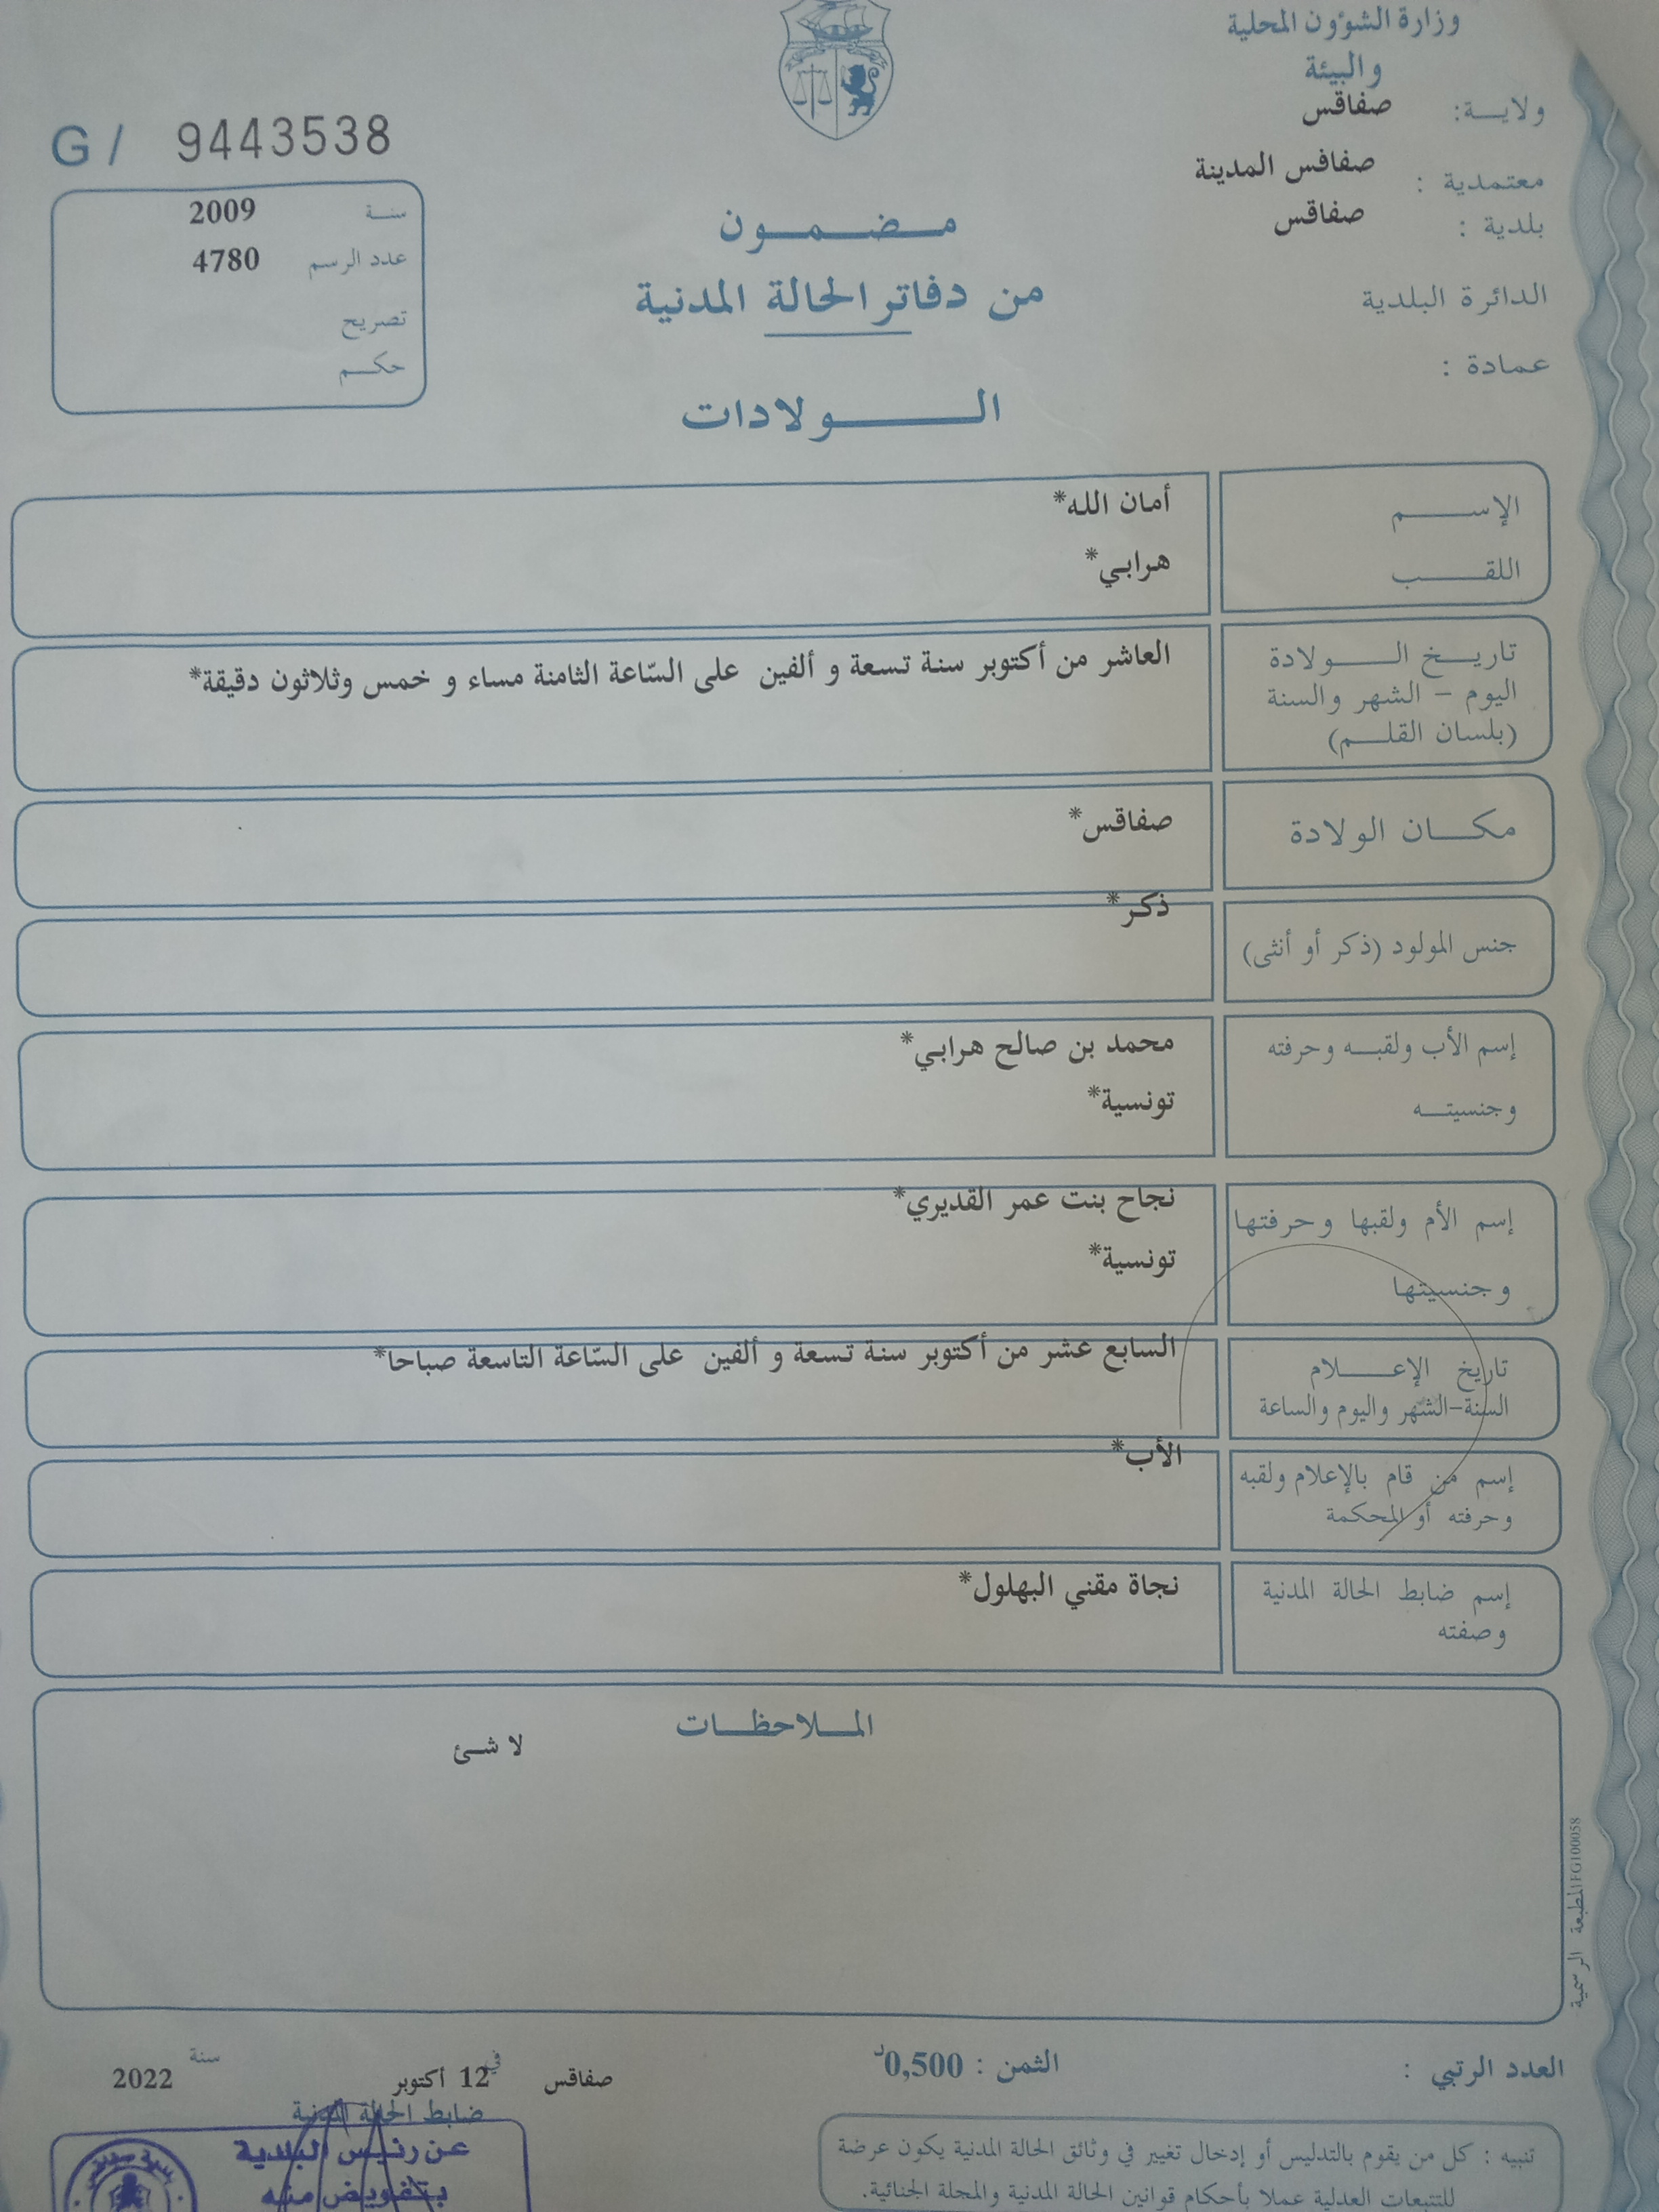 وزارة الشؤون المحلية
والبيئة
ولايـــة: صفاقس
معتمدية : صفافس المدينة
بلدية : صفاقس
الدائرة البلدية
عمادة :
G / 9443538
سنـة 2009
عدد الرسم 4780
تصريح
حكــم
مــضــمــون
من دفاتر الحالة المدنية
الـــولادات
الإســـم أمان الله*
اللقــب هرابي*
تاريــخ الـــولادة العاشر من أكتوبر سنة تسعة و ألفين على السّاعة الثامنة مساء و خمس وثلاثون دقيقة*
اليوم – الشهر والسنة
(بلسان القلــم)
مكــان الولادة صفاقس*
جنس المولود (ذكر أو أنثى) ذكر*
إسم الأب ولقبــه وحرفته محمد بن صالح هرابي*
وجنسيتــه تونسية*
إسم الأم ولقبها وحرفتها نجاح بنت عمر القديري*
وجنسيتها تونسية*
تاريخ الإعـــلام السابع عشر من أكتوبر سنة تسعة و ألفين على السّاعة التاسعة صباحا*
السنة-الشهر واليوم والساعة
إسم من قام بالإعلام ولقبه الأب*
وحرفته أو المحكمة
إسم ضابط الحالة المدنية نجاة مقني البهلول*
وصفته
المــلاحظــات
لا شئ
المطبعة الرسمية FG100058
العدد الرتبي :
الثمن : 0,500د
صفاقس في 12 أكتوبر سنة 2022
ضابط الحالة المدنية
عن رئيس البلدية
بتفويض منه
تنبيه : كل من يقوم بالتدليس أو إدخال تغيير في وثائق الحالة المدنية يكون عرضة
للتتبعات العدلية عملا بأحكام قوانين الحالة المدنية والمجلة الجنائية.